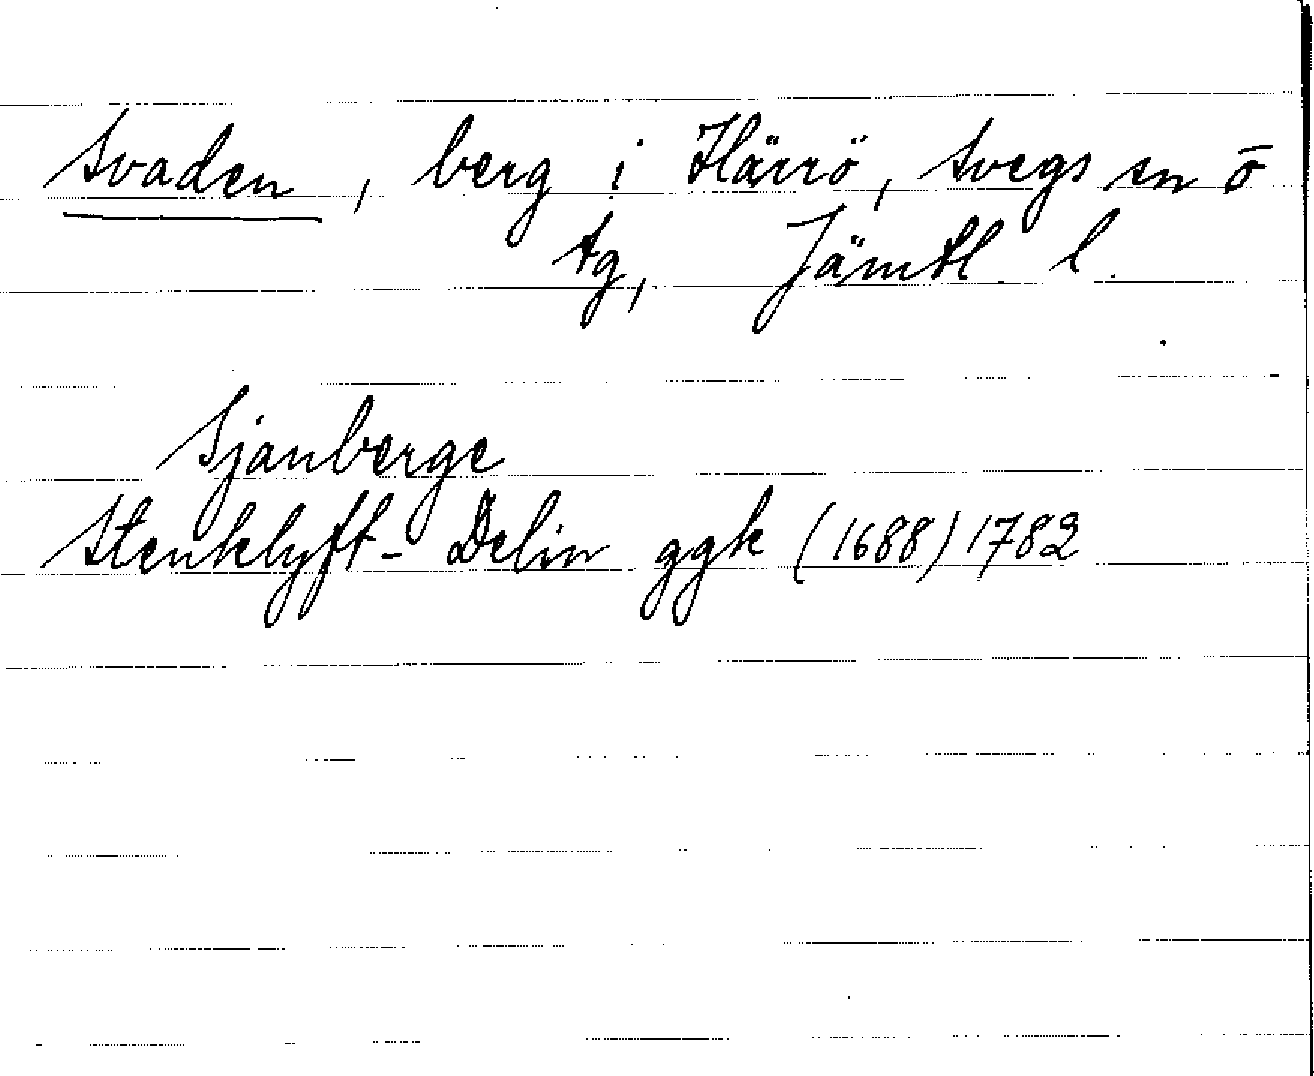 Svaden, berg i Härrö, Svegs sn ö
tg, Jämtl l.
Sjanberge
Stenklyft- Delin ggk (1688) 1782